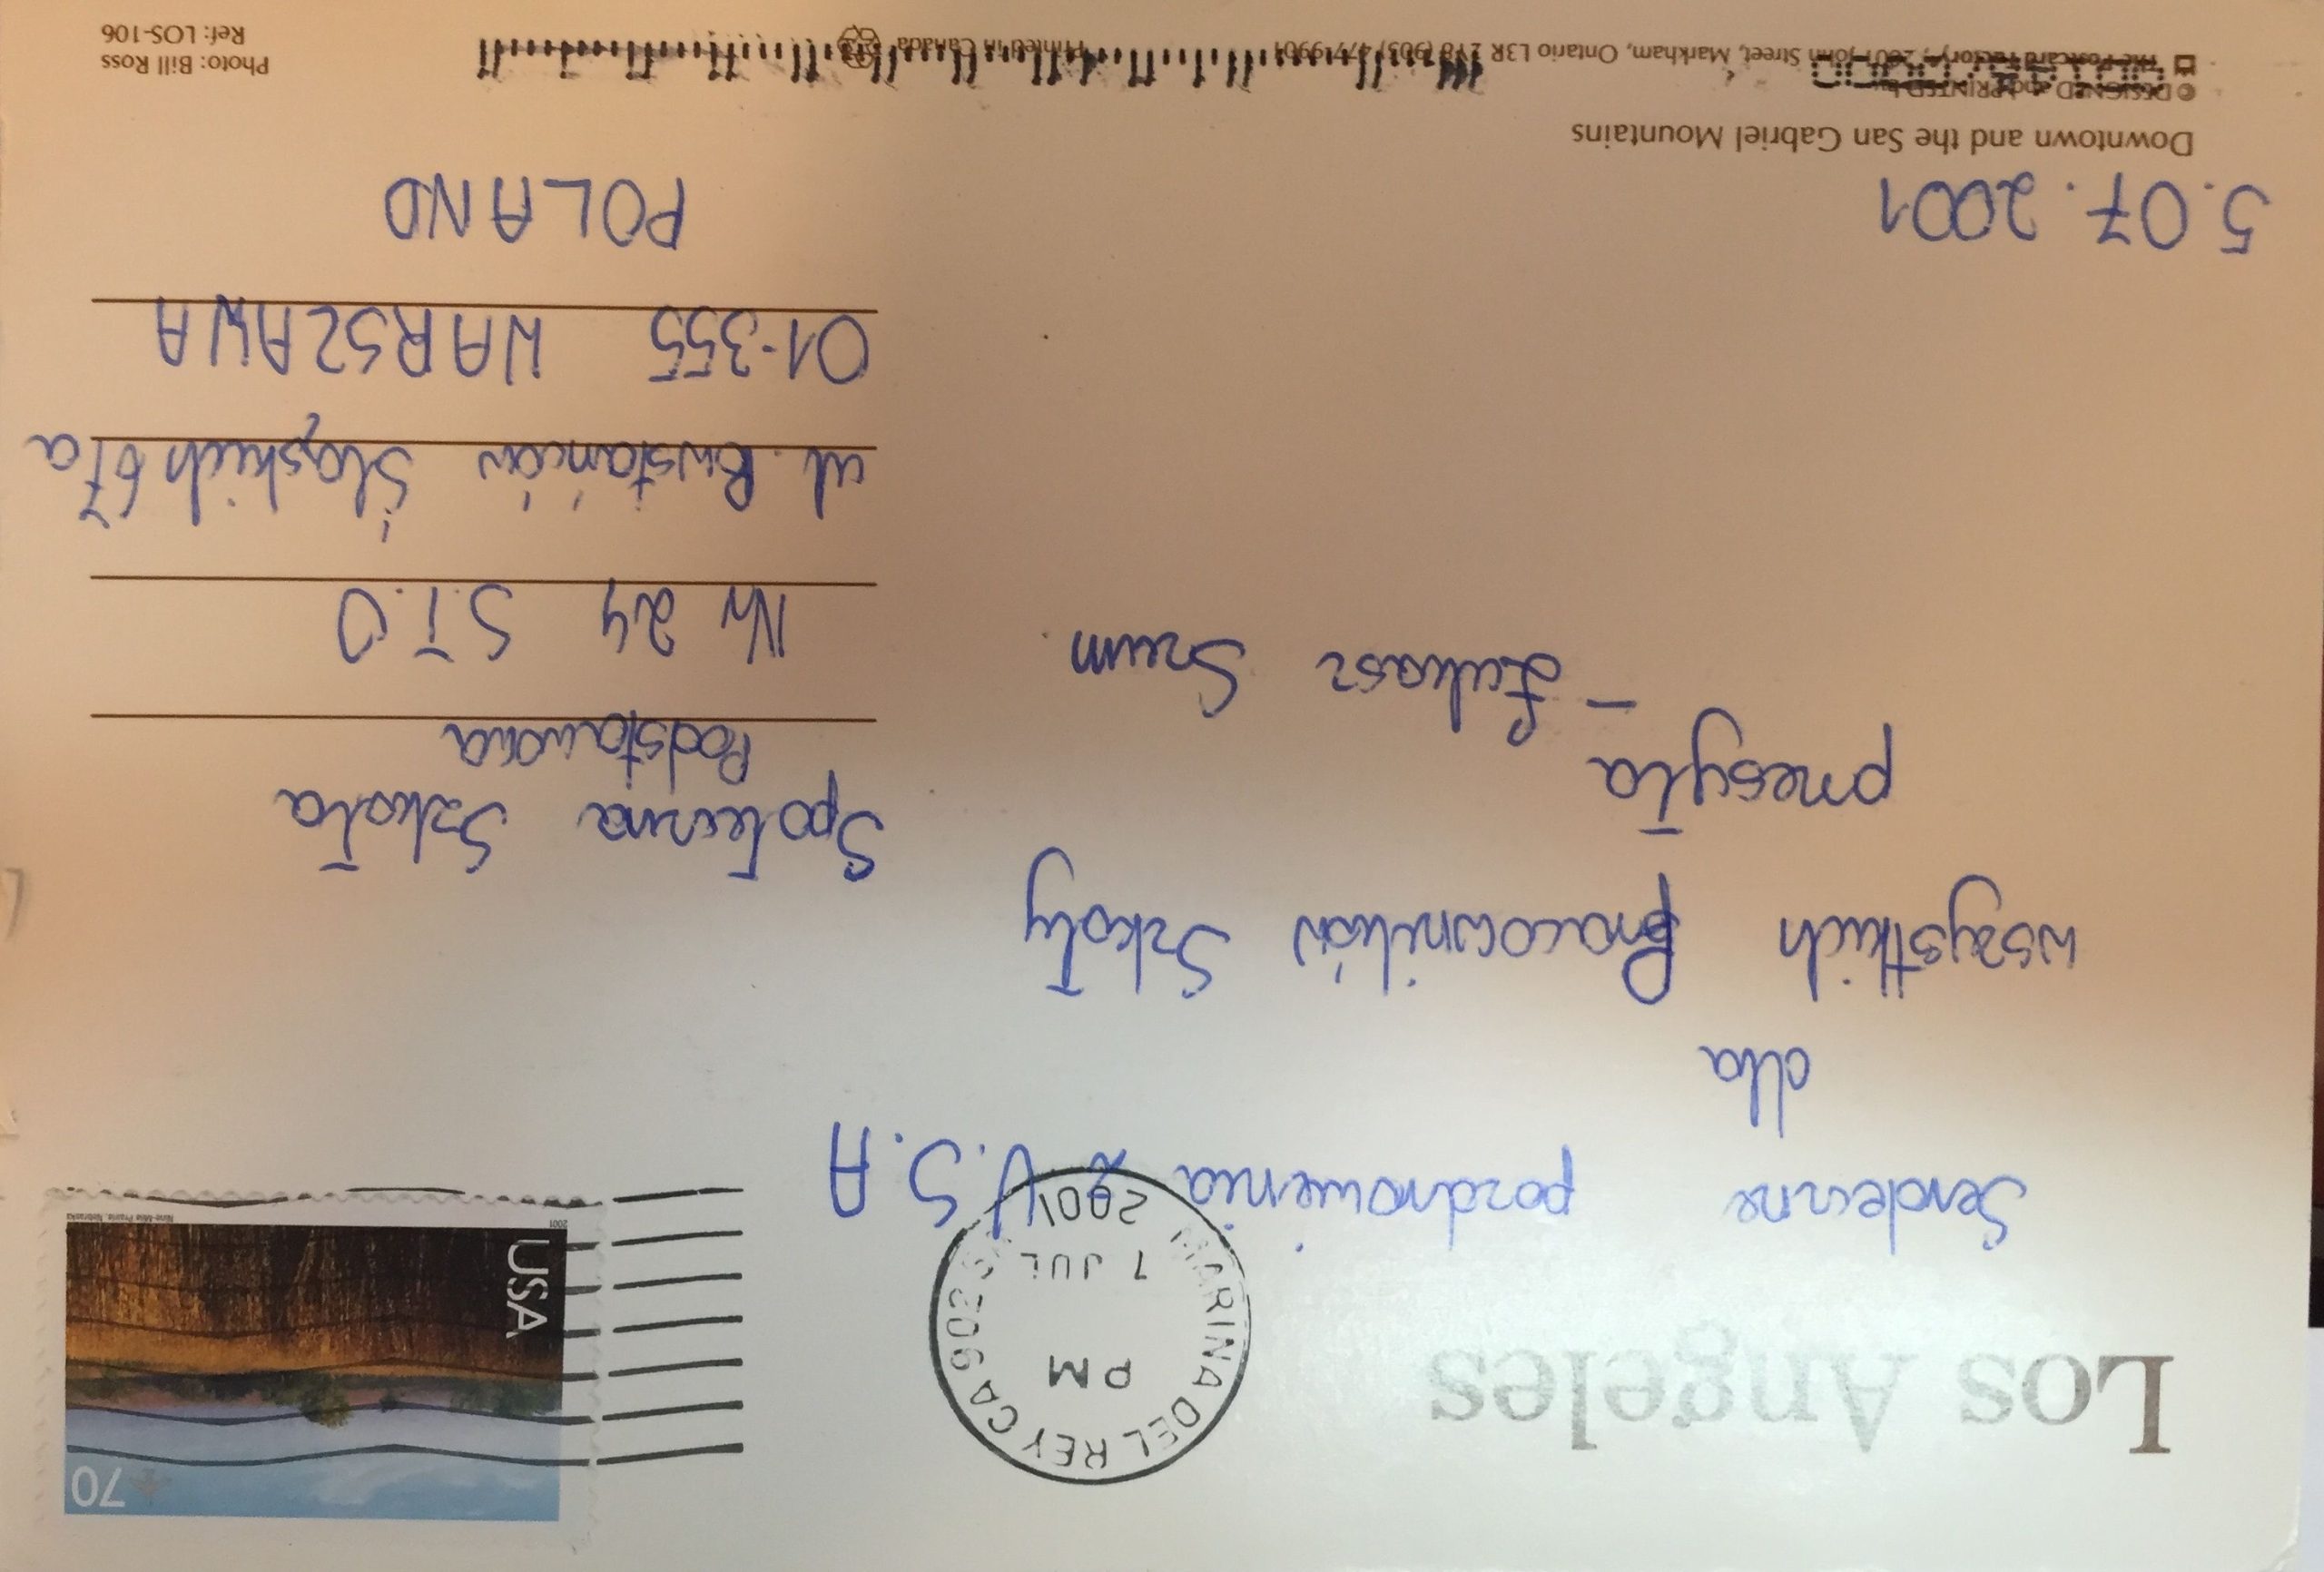 Los Angeles
USA
70
2001
Nine-Mile Prairie, Nebraska
MARINA DEL REY CA 90295
PM
7 JUL
2001
Serdeczne pozdrowienia z U.S.A
dla
wszystkich Pracowników Szkoły
przesyła
- Łukasz Szum
5.07.2001
Społeczna Szkoła
Podstawowa
Nr 24 S.T.O
ul. Powstańców Śląskich 67a
01-355 WARSZAWA
POLAND
Downtown and the San Gabriel Mountains
© DESIGNED and PRINTED
The Postcard Factory, 2801 John Street, Markham, Ontario L3R 2Y8 (905) 477-9901
Printed in Canada
Photo: Bill Ross
Ref: LOS-106